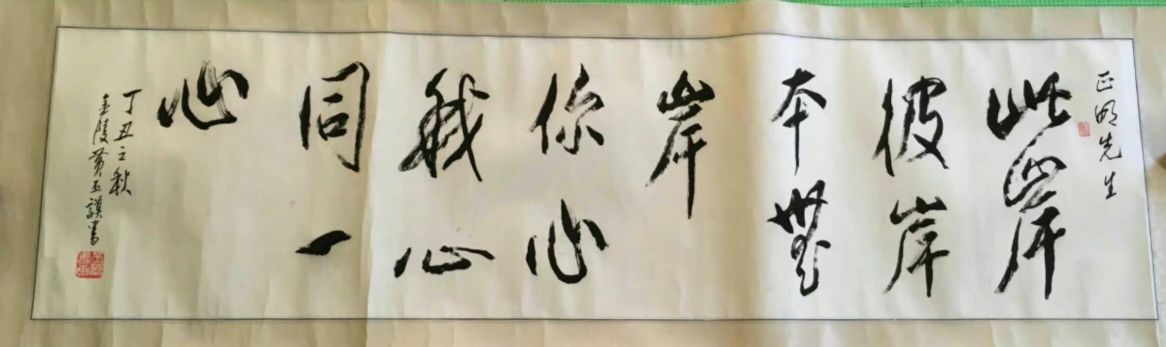 正明先生
此岸
彼岸
本无
岸
你心
我心
同一
心
丁丑之秋
金陵黄玉谟书